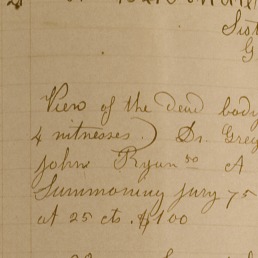 View of the dead body
4 witnesses.) Dr. Greg
John Ryan 50 A
Summoning jury 75
at 25 cts. $1.00